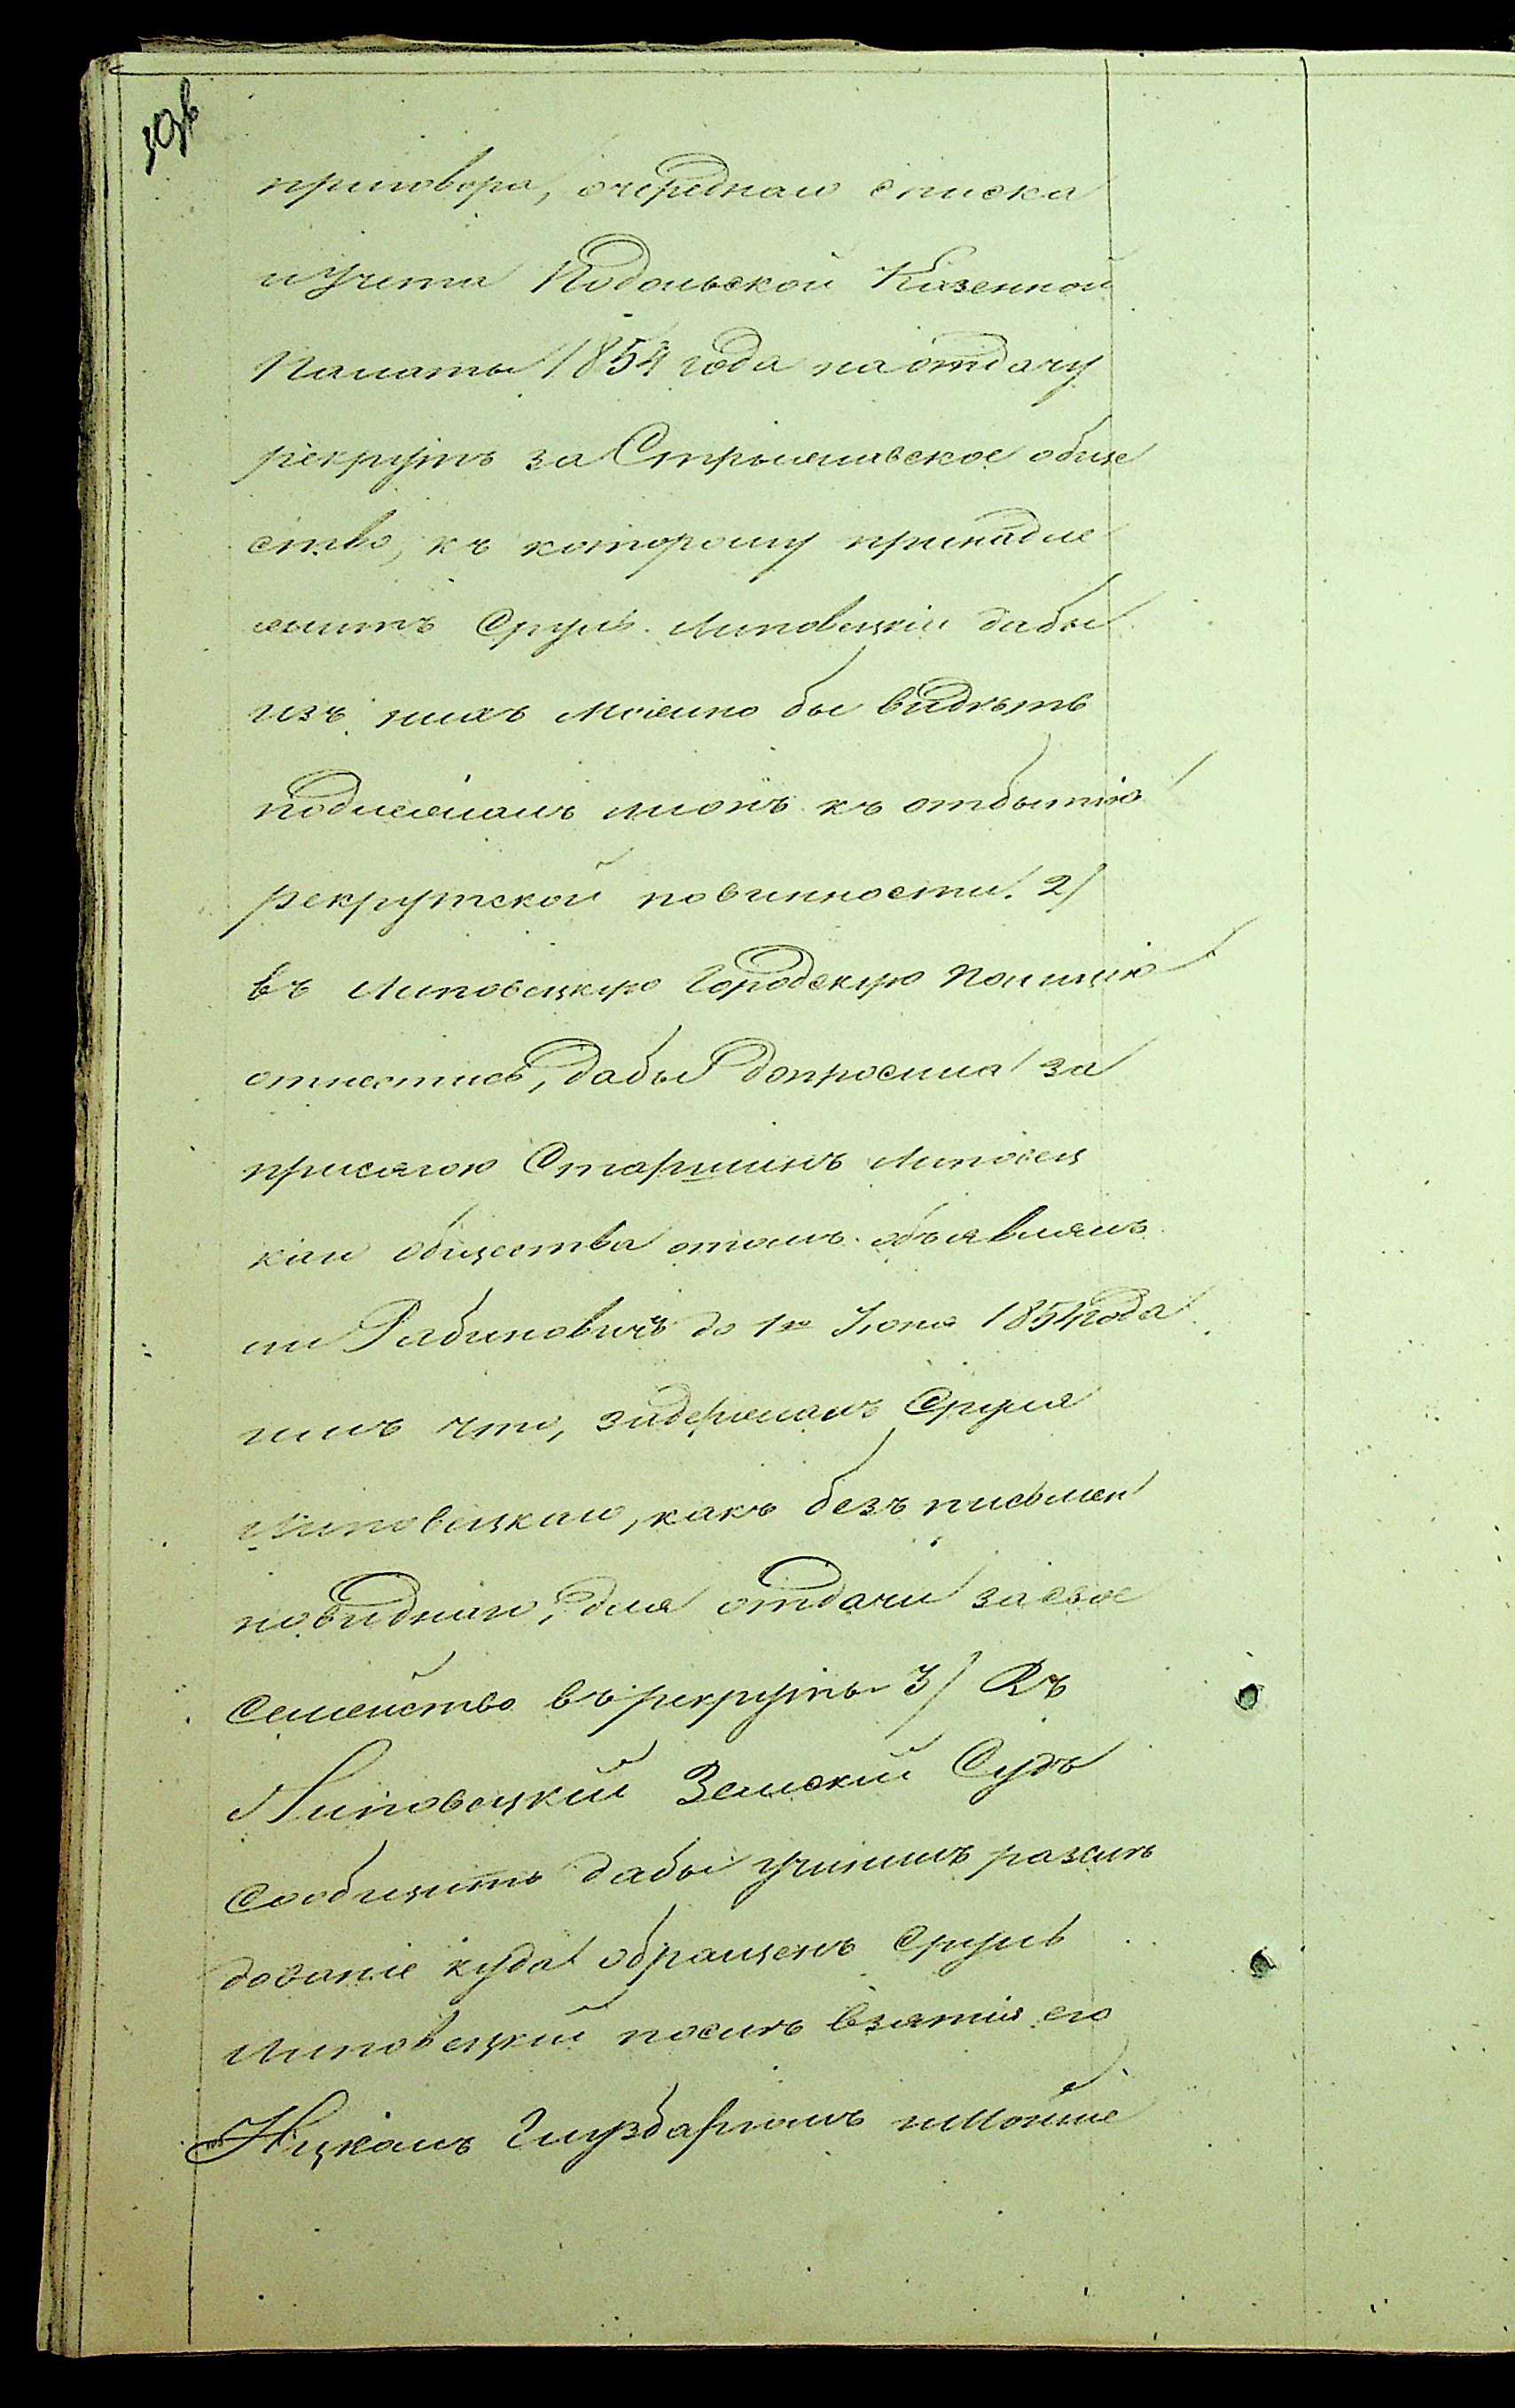 приговора, очереднаго списка
и учета Подольской Казенной
Палаты 1854 года на отдачу
рекрутъ за Стрижавское обще
ство, къ которому принадле
житъ Сруль Липовецкій дабы
изъ нихъ можно бы видѣть
подлежалъ ли онъ къ отбытію
рекрутской повинности. 2/
въ Липовецкую Городскую Полицію
отнестись, дабы допросила за
присягою Старшинъ Липовец
каго общества о томъ объявлялъ
ли Рабиновичъ до 1го Июня 1854 года
имъ что, задержалъ Сруля
Липовецкаго, какъ безъ письмен
новиднаго, для отдачи за свое
семейство въ рекруты 3/ Въ
Липовецкій Земскій Судъ
сообщить дабы учинилъ разслѣ
дованіе куда обращенъ Сруль
Липовецкій послѣ взятія его
Ицкомъ и Мошке